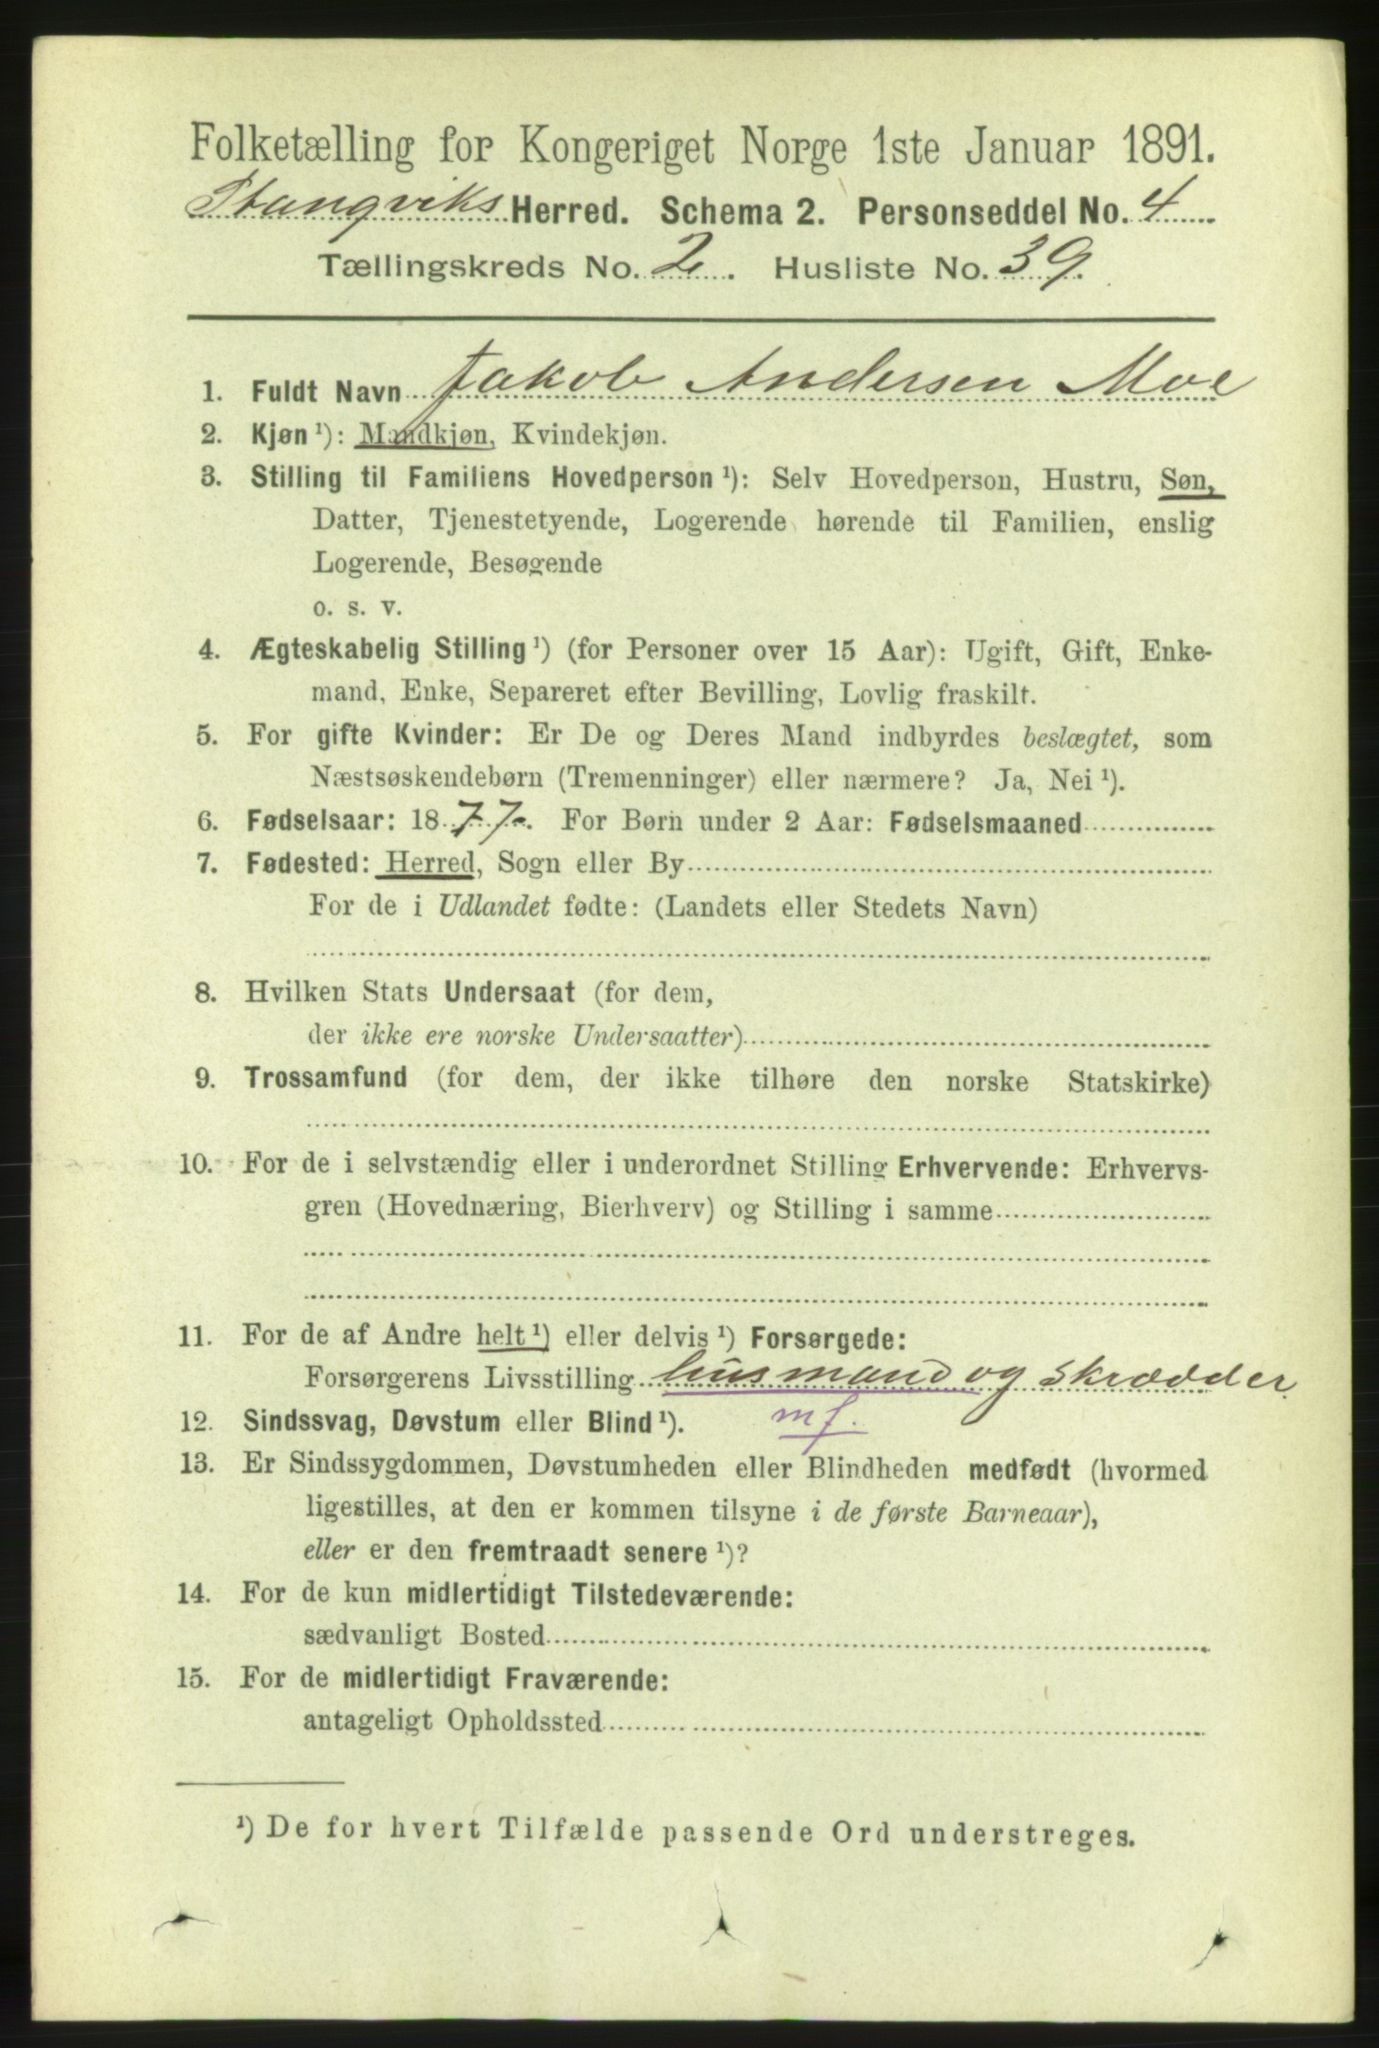 Folketælling for Kongeriget Norge 1ste Januar 1891.
Stangviks Herred. Schema 2. Personseddel No. 4
Tællingskreds No. 2. Husliste No. 39.
1. Fuldt Navn Jakob Andersen Moe
2. Kjøn ¹): Mandkjøn, Kvindekjøn.
3. Stilling til Familiens Hovedperson ¹): Selv Hovedperson, Hustru, Søn,
Datter, Tjenestetyende, Logerende hørende til Familien, enslig
Logerende, Besøgende
o. s. v.
4. Ægteskabelig Stilling ¹) (for Personer over 15 Aar): Ugift, Gift, Enke-
mand, Enke, Separeret efter Bevilling, Lovlig fraskilt.
5. For gifte Kvinder: Er De og Deres Mand indbyrdes beslægtet, som
Næstsøskendebørn (Tremenninger) eller nærmere? Ja, Nei ¹).
6. Fødselsaar: 1877. For Børn under 2 Aar: Fødselsmaaned
7. Fødested: Herred, Sogn eller By
For de i Udlandet fødte: (Landets eller Stedets Navn)
8. Hvilken Stats Undersaat (for dem,
der ikke ere norske Undersaatter)
9. Trossamfund (for dem, der ikke tilhøre den norske Statskirke)
10. For de i selvstændig eller i underordnet Stilling Erhvervende: Erhvervs-
gren (Hovednæring, Bierhverv) og Stilling i samme
11. For de af Andre helt ¹) eller delvis ¹) Forsørgede:
Forsørgerens Livsstilling husmand og skrædder
12. Sindssvag, Døvstum eller Blind ¹). mf.
13. Er Sindssygdommen, Døvstumheden eller Blindheden medfødt (hvormed
ligestilles, at den er kommen tilsyne i de første Barneaar),
eller er den fremtraadt senere ¹)?
14. For de kun midlertidigt Tilstedeværende:
sædvanligt Bosted
15. For de midlertidigt Fraværende:
antageligt Opholdssted
¹) De for hvert Tilfælde passende Ord understreges.